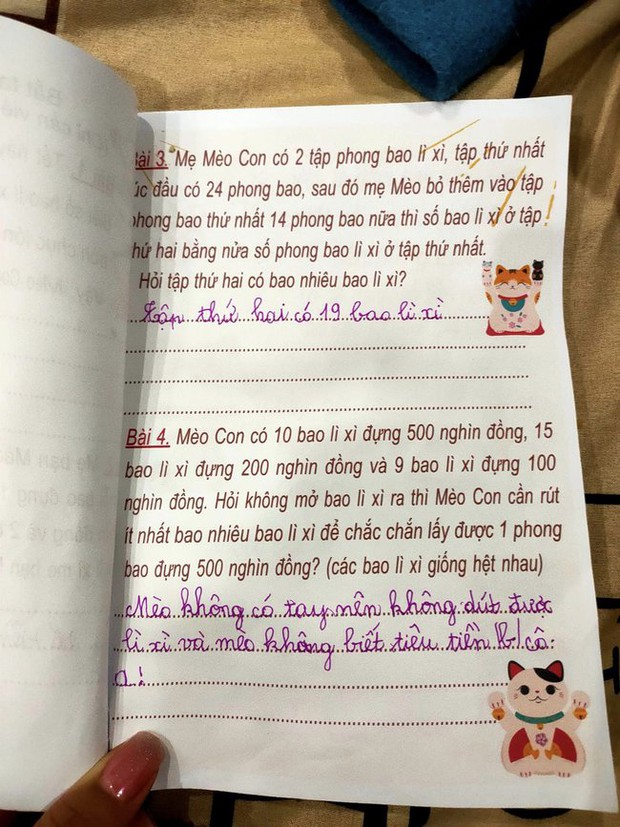 Bài 3. Mẹ Mèo Con có 2 tập phong bao lì xì, tập thứ nhất
lúc đầu có 24 phong bao, sau đó mẹ Mèo bỏ thêm vào tập
phong bao thứ nhất 14 phong bao nữa thì số bao lì xì ở tập
thứ hai bằng nửa số phong bao lì xì ở tập thứ nhất.
Hỏi tập thứ hai có bao nhiêu bao lì xì?
Tập thứ hai có 19 bao lì xì
Bài 4. Mèo Con có 10 bao lì xì đựng 500 nghìn đồng, 15
bao lì xì đựng 200 nghìn đồng và 9 bao lì xì đựng 100
nghìn đồng. Hỏi không mở bao lì xì ra thì Mèo Con cần rút
ít nhất bao nhiêu bao lì xì để chắc chắn lấy được 1 phong
bao đựng 500 nghìn đồng? (các bao lì xì giống hệt nhau)
Mèo không có tay nên không dút được
lì xì và mèo không biết tiêu tiền cô
ạ!